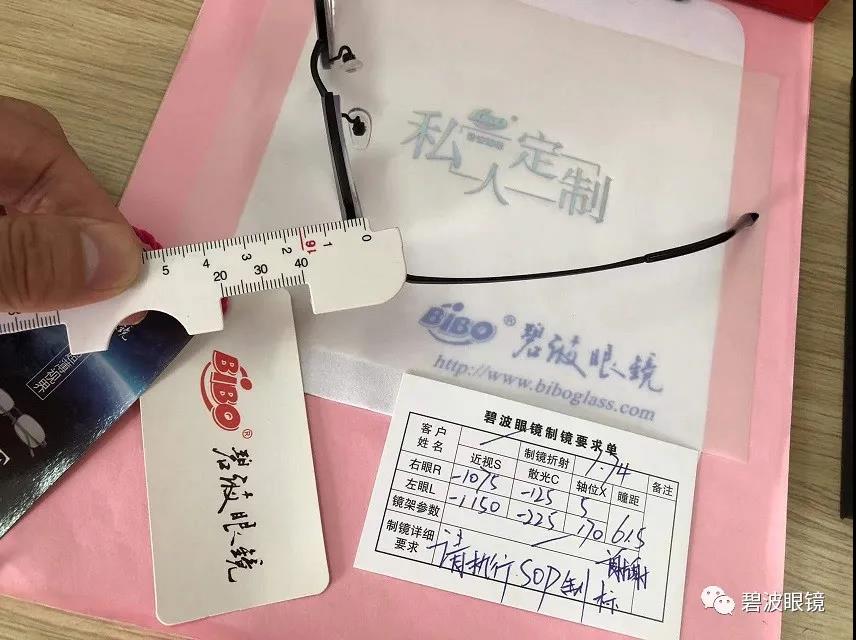 Bibo
私人定制
0 1 2 3 4 5
16
40 30 20
BiBO® 碧波眼镜
http://www.biboglass.com
BiBO® 碧波眼镜
碧波眼镜制镜要求单
客户姓名 制镜折射 1.74 备注
近视S 散光C 轴位X 瞳距
右眼R -1075 -125 5 615
左眼L -1150 -225 170
镜架参数
制镜详细要求 请机行SOP刻标 谢谢
碧波眼镜